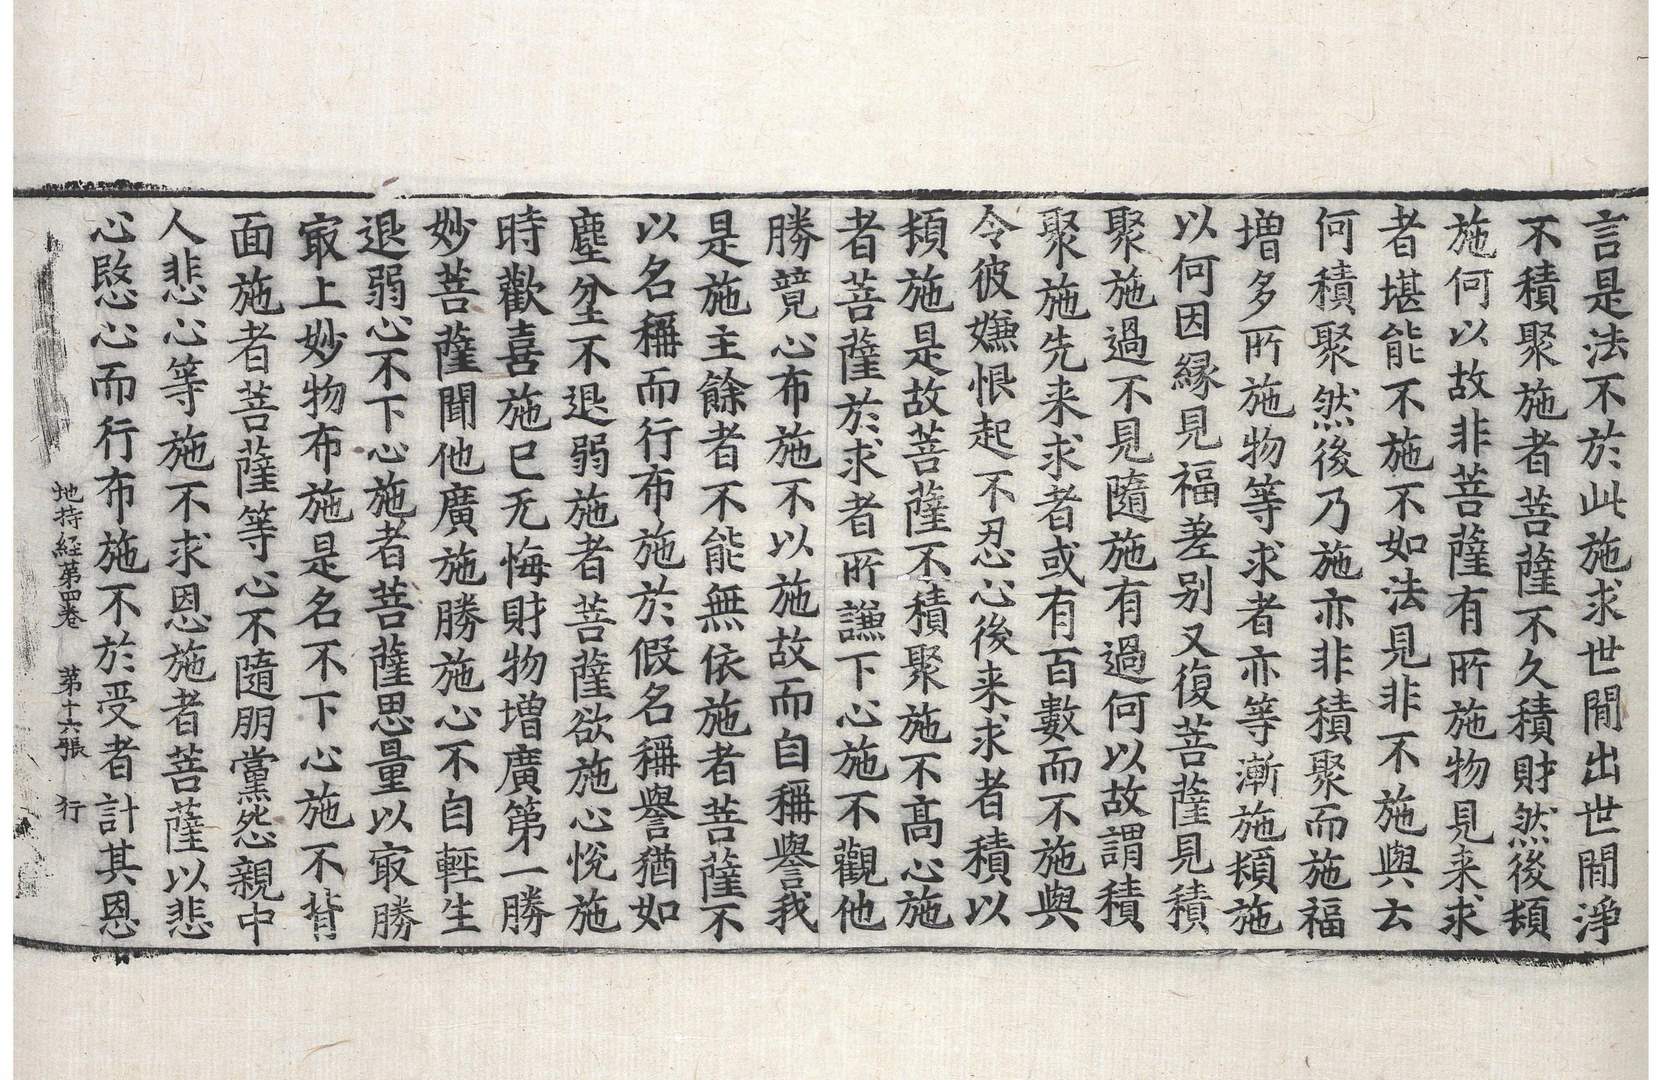 言是法不於此施求世間出世間淨
不積聚施者菩薩不久積財然後頓
施何以故非菩薩有所施物見来求
者堪能不施不如法見非不施與云
何積聚然後乃施亦非積聚而施福
增多所施物等求者亦等漸施頓施
以何因縁見福差别又復菩薩見積
聚施過不見隨施有過何以故謂積
聚施先来求者或有百數而不施與
令彼嫌恨起不忍心後来求者積以
頓施是故菩薩不積聚施不高心施
者菩薩於求者所謙下心施不觀他
勝競心布施不以施故而自稱譽我
是施主餘者不能無依施者菩薩不
以名稱而行布施於假名稱譽猶如
塵坌不退弱施者菩薩欲施心悅施
時歡喜施已无悔財物增廣第一勝
妙菩薩聞他廣施勝施心不自輕生
退弱心不下心施者菩薩思量以㝡勝
㝡上妙物布施是名不下心施不背
面施者菩薩等心不隨朋黨怨親中
人悲心等施不求恩施者菩薩以悲
心愍心而行布施不於受者計其恩
地持経第四卷 第十六張 行